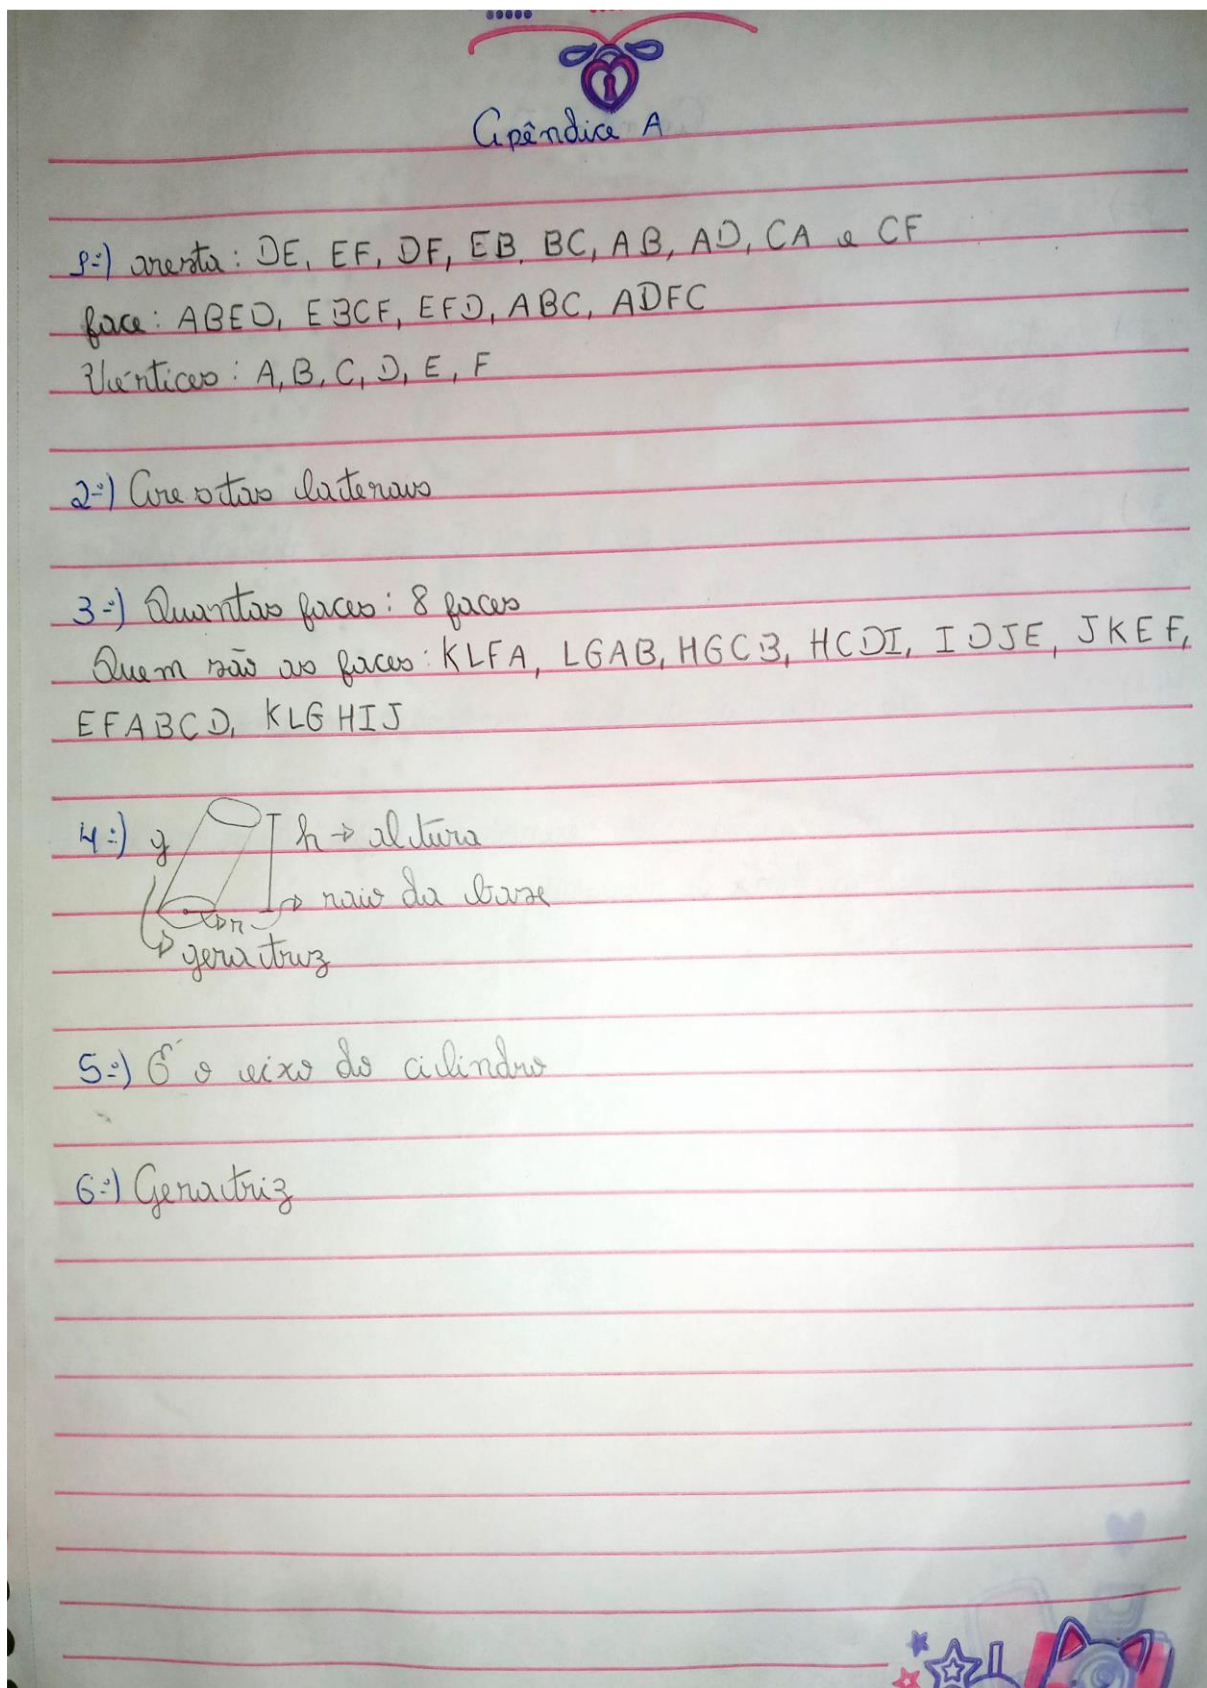 Apêndice A
1-) aresta: DE, EF, DF, EB, BC, AB, AD, CA e CF
face: ABED, EBCF, EFD, ABC, ADFC
Vértices: A, B, C, D, E, F
2-) Arestas laterais
3-) Quantas faces: 8 faces
Quem são as faces: KLFA, LGAB, HGCB, HCDI, IDJE, JKEF,
EFABCD, KLGHIJ
4-) g h → altura
r → raio da base
→ geratriz
5-) É o eixo do cilindro
6-) Geratriz